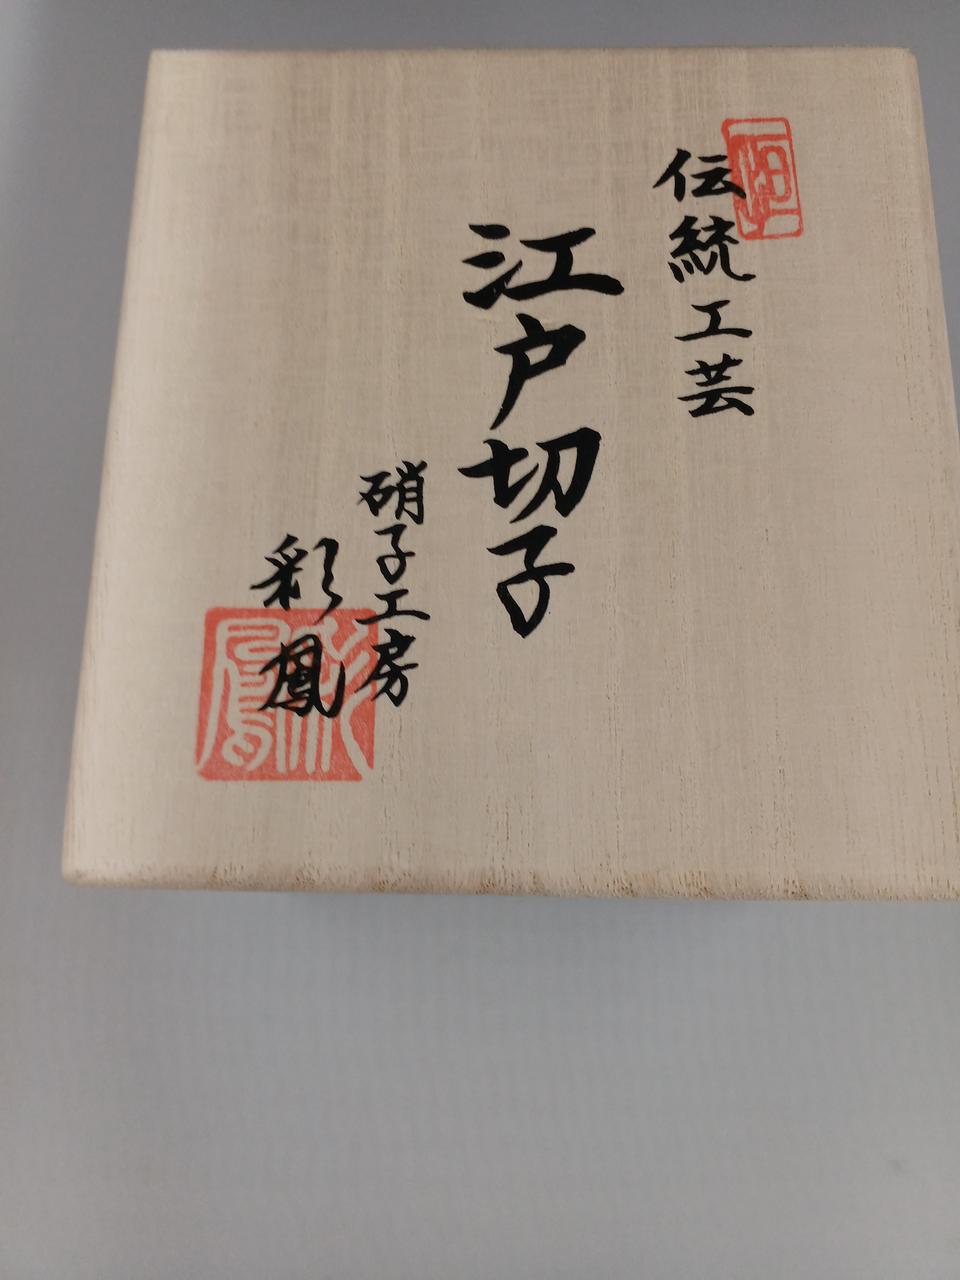 伝統工芸
江戸切子
硝子工房
彩鳳
彩鳳